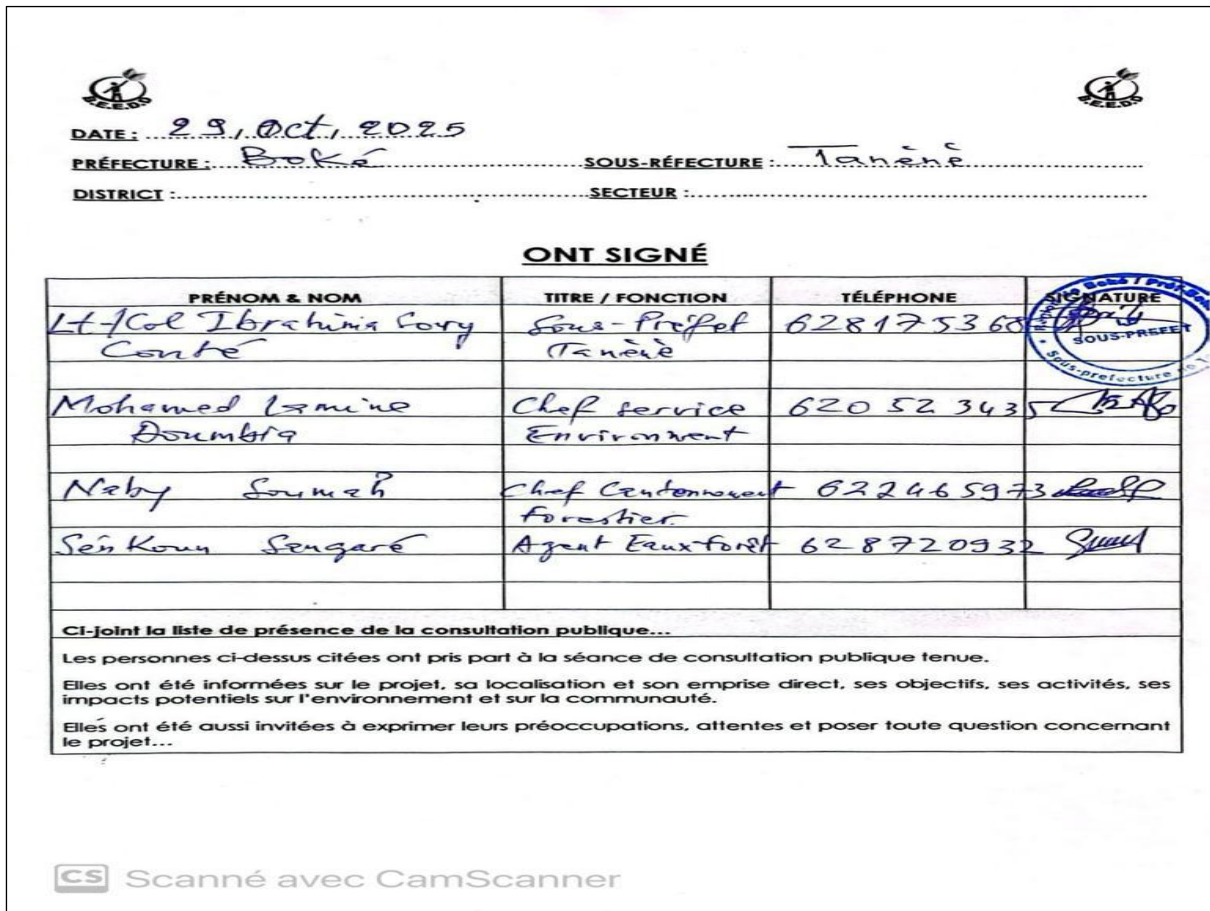 B.E.E.D.D B.E.E.D.D
DATE : 29, Oct, 2025
PRÉFECTURE : Boké SOUS-RÉFECTURE : Tanènè
DISTRICT : SECTEUR :
ONT SIGNÉ
PRÉNOM & NOM TITRE / FONCTION TÉLÉPHONE SIGNATURE
Lt-/Col Ibrahima Sory Sous-Préfet 628175368
Conté Tanènè
SOUS-PREFET
Sous-prefecture
Mohamed Lamine Chef service 620 52 3435
Doumbia Environnent
Naby Soumah Chef Cantonnement 622465973
forestier.
Sén Koun Sangaré Agent Eaux forêt 628720932
Ci-joint la liste de présence de la consultation publique...
Les personnes ci-dessus citées ont pris part à la séance de consultation publique tenue.
Elles ont été informées sur le projet, sa localisation et son emprise direct, ses objectifs, ses activités, ses
impacts potentiels sur l'environnement et sur la communauté.
Elles ont été aussi invitées à exprimer leurs préoccupations, attentes et poser toute question concernant
le projet...
CS Scanné avec CamScanner